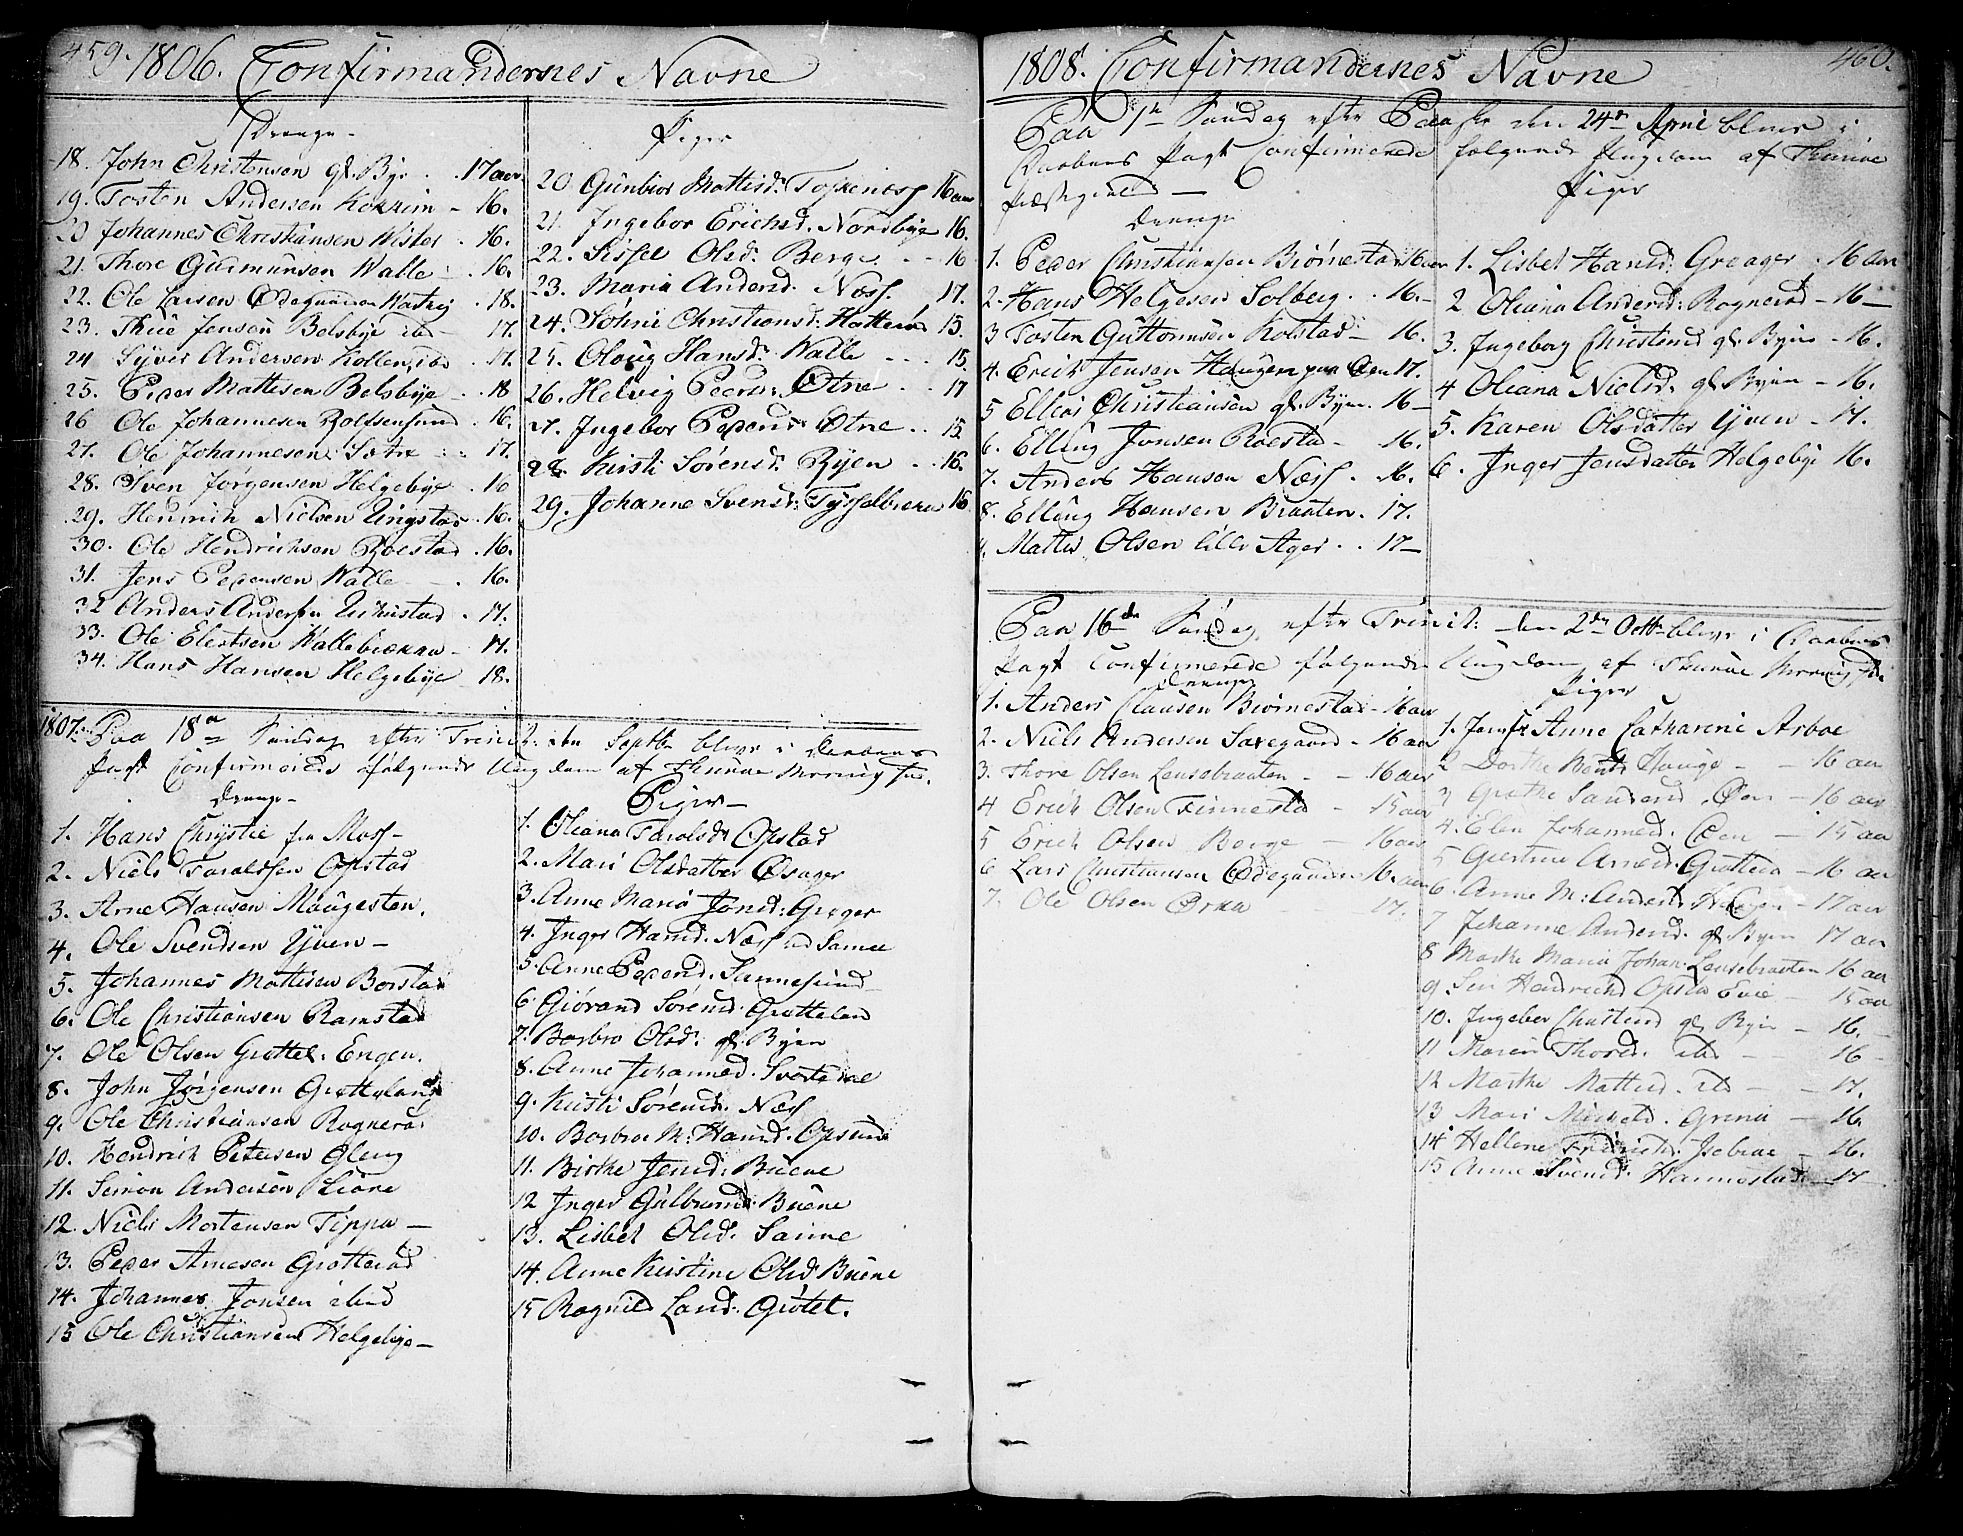 459. 1806. Confirmandernes Navne
Drenge
18. John Christensen gl. Bye . . 17 aar
19. Tosten Andersen Kokkim - 16.
20 Johannes Christiansen Wister . 16.
21. Thore Gudmunsen Walle . 16.
22. Ole Larsen Ødegaarden Wastvig . 18.
23. Thue Jensen Belsbye - 17.
24 Syver Andersen Kollens - 17.
25. Peder Mattisen Belsbye - 18
26 Ole Johannesen Rolfsensund . 16.
27. Ole Johannesen Sætre . . 17.
28. Sven Jørgensen Helgebye . 16
29. Hendrich Nielsen Ungstad . 16.
30. Ole Hendrichsen Roestad . 16.
31. Jens Pedersen Walle . 16.
32 Anders Andersen . 17.
33. Ole Elertsen Wallebrække - 17.
34. Hans Hansen Helgebye - 18.
Piger
20 Gunbior Mattisd: Toskenæs 16 aar
21. Ingebor Erichsd. Nordbye 16.
22. Sissel Olsd: Berge . . 16
23. Maria Andersd. Næss. 17.
24. Søhrie Christiansd: Hatterød 15.
25. Oloug Hansd: Walle . . 15
26. Helvig Peersd: Otne . . 17
27. Ingebor Pedersd: Otne . . 15
28. Kirsti Sørensd: Ryen . . 16.
29. Johanne Svensd: Tysselbrekka 16
1807. Paa 18de Søndag efter Trinit: den Septb: bleve i Daabens
Pagt Confirmerede følgende Ungdom af Thunøe Menighed.
Drenge
1. Hans Chrystie fra Moss -
2. Niels Taraldsen Opstad
3. Arne Hansen Maugesten.
4. Ole Svendsen Yven -
5. Johannes Mattisen Borstad
6. Ole Christiansen Ramstad
7. Ole Olsen Grottel: Engen.
8. John Jørgensen Grotteland
9. Ole Christiansen Rognerød
10. Hendrich Petersen Gleng
11. Simon Andersen Liøne
12. Niels Mortensen Tippa -
13. Peder Arnesen Grotterød
14. Johannes Jonsen ibid
15 Ole Christiansen Helgebye -
Piger -
1. Oliana Taraldsd: Opstad
2. Mari Olsdatter Øsager
3. Anne Maria Jonsd: Greger
4. Inger Hansd. Næss ved Sanne
5. Anne Pedersd. Sannesund
6. Giørand Sørensd. Grotteland
7. Barbro Olsd. gl. Byen
8. Anne Johannesd. Svartedal
9. Kirsti Sørensd. Næss
10. Barbroe M: Hansd. Opsund
11. Birthe Jensd: Buene
12 Inger Gulbrandsd: Buene
13. Lisbet Olsd. Sanne
14. Anne Kirstine Olsd Buene
15 Ragnild Larsd: Grøtet.
1808. Confirmandernes Navne 460.
Paa 1te Søndag efter Paaske den 24de April bleve i
Daabens Pagt Confirmerede følgende Ungdom af Thunøe
Præstegield -
Drenge
1. Peder Christiansen Biørnestad 16 aar
2. Hans Helgesen Solberg . . 16. -
3 Tosten Guttormsen Kolstad - 16.
4. Erich Jensen Haugen paa Øen 17.
5 Ellias Christiansen gl. Byen . 16 -
6. Elling Jonsen Roestad - 16.
7. Anders Hansen Næss . 16.
8. Elling Hansen Braaten . 17.
9. Mattis Olsen lille Ager . . 17 -
Piger
1. Lisbet Hansd: Greager . 16 aar
2 Oliana Andersd: Rognerød - 16 -
3. Ingeborg Christensd gl. Byen - 16.
4 Oliana Nielsd. gl. Byen - 16.
5. Karen Olsdatter Yven - 17.
6. Inger Jensdatter Helgebye 16.
Paa 16de Søndag efter Trinit: den 2den Octb: bleve i Daabens
Pagt Confirmerede følgende Ungdom af Thunøe Menighed
Drenge
1. Anders Clausen Biørnestad - 16 aar
2. Niels Andersen Soregaard - 16 aar
3. Thore Olsen Lensebraaten - - 16 aar
4 Erich Olsen Finnestad - 15 aar
5 Erich Olsen Berge - 16 aar
6 Lars Christiansen Ødegaarden 16. aar
7. Ole Olsen Ørna - 17.
Piger
1. Jomfr: Anne Catharine Arboe
2 Dorthe Bentsd Hauge - - 16 aar
3 Grethe Sandersd. Øen - 16 aar
4. Elen Johannesd. Øen - 15 aar
5 Giertrue Arnesd. Grotterød - 16 aar
6. Anne M: Andersd. Haugen - 17 aar
7 Johanne Andersd. gl. Byen 17 aar
8 Marthe Maria Johan. Lensebraaten 16 aar
9 Siri Hendrichsd Opstad Eie - 15 aar
10. Ingebor Christensd gl. Byen - 16.
11 Maren Thoresd. ibd - - 16 -
12 Marthe Mattisd. ibd - - 17.
13 Mari Michelsd. Grena - 16.
14 Hellene Fridrichsd. Isebroe - 16.
15 Anne Svensd. Hannestad - 17